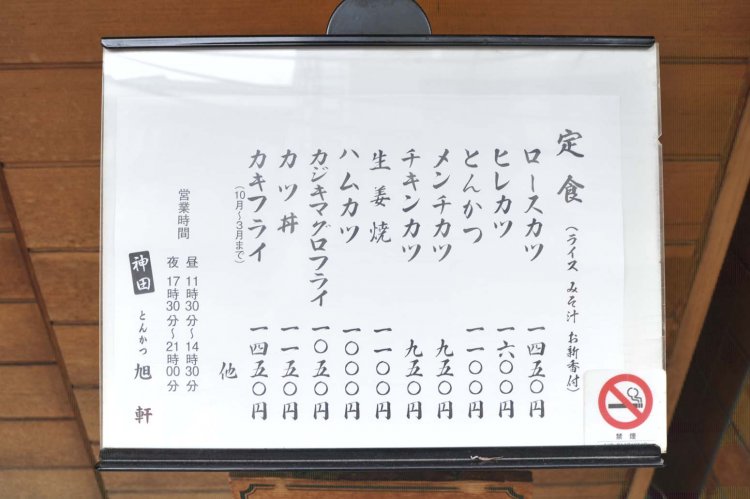 定食（ライス みそ汁 お新香付）
ロースカツ 一四五〇円
ヒレカツ 一六〇〇円
とんかつ 一一〇〇円
メンチカツ 九五〇円
チキンカツ 九五〇円
生姜焼 一一〇〇円
ハムカツ 一〇〇〇円
カジキマグロフライ 一〇五〇円
カツ丼 一一五〇円
カキフライ 一四五〇円
（10月～3月まで）
他
営業時間
昼 11時30分～14時30分
夜 17時30分～21時00分
神田 とんかつ 旭軒
禁煙